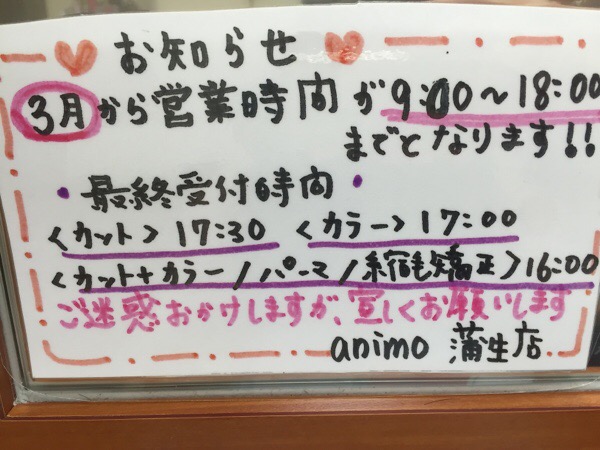 お知らせ
3月から営業時間が9:00~18:00
までとなります!!
・最終受付時間・
<カット>17:30 <カラー>17:00
<カット+カラー/パーマ/縮毛矯正>16:00
ご迷惑おかけしますが、宜しくお願いします
animo 蒲生店